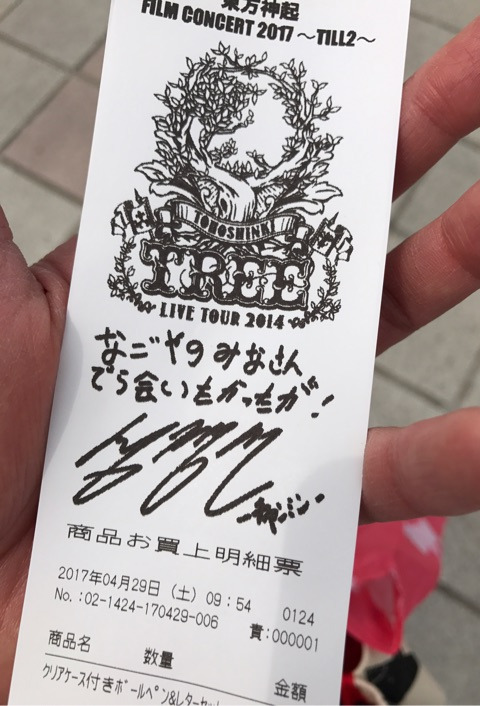 東方神起
FILM CONCERT 2017 〜TILL2〜
TOHOSHINKI
TREE
LIVE TOUR 2014
なごやのみなさん
でら会いたかったが!
商品お買上明細票
2017年04月29日(土) 09:54 0124
No.:02-1424-170429-006 責:000001
商品名 数量 金額
クリアケース付きボールペン&レターセット